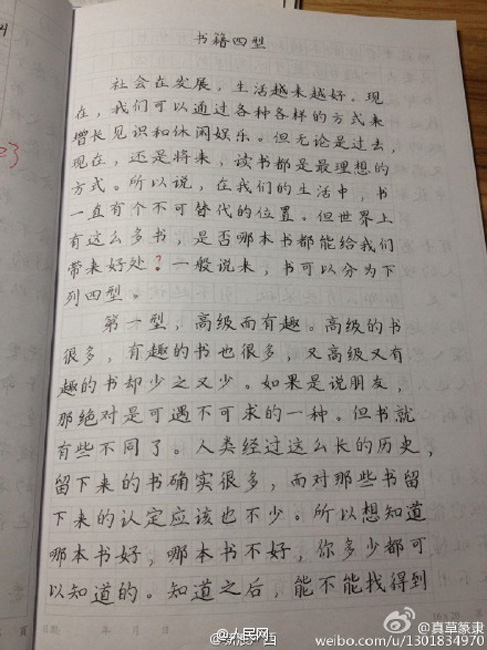 书籍四型
社会在发展，生活越来越好。现
在，我们可以通过各种各样的方式来
增长见识和休闲娱乐。但无论是过去，
现在，还是将来，读书都是最理想的
方式。所以说，在我们的生活中，书
一直有个不可替代的位置。但世界上
有这么多书，是否哪本书都能给我们
带来好处？一般说来，书可以分为下
列四型。
第一型，高级而有趣。高级的书
很多，有趣的书也很多，又高级又有
趣的书却少之又少。如果是说朋友，
那绝对是可遇不可求的一种。但书就
有些不同了。人类经过这么长的历史，
留下来的书确实很多，而对那些书留
下来的认定应该也不少。所以想知道
哪本书好，哪本书不好，你多少都可
以知道的。知道之后，能不能找得到
年 月 日
@人民网
@真草篆隶
weibo.com/u/1301834970